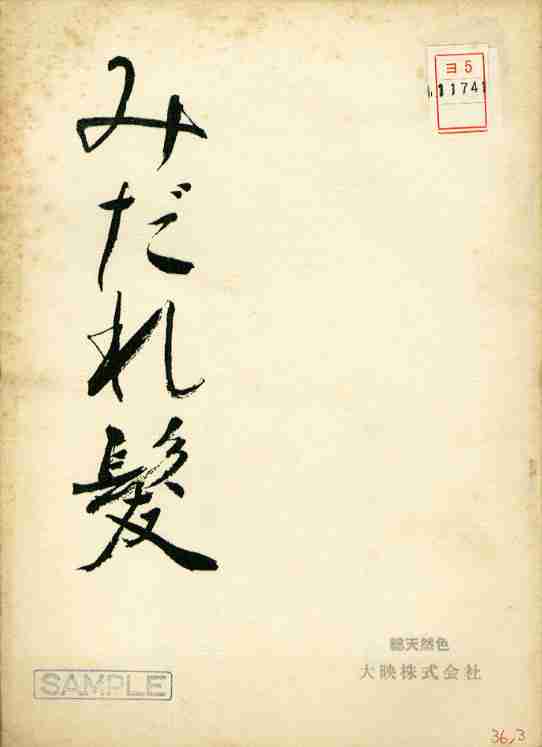 みだれ髪
ヨ5
11741
總天然色
大映株式会社
SAMPLE
36,3